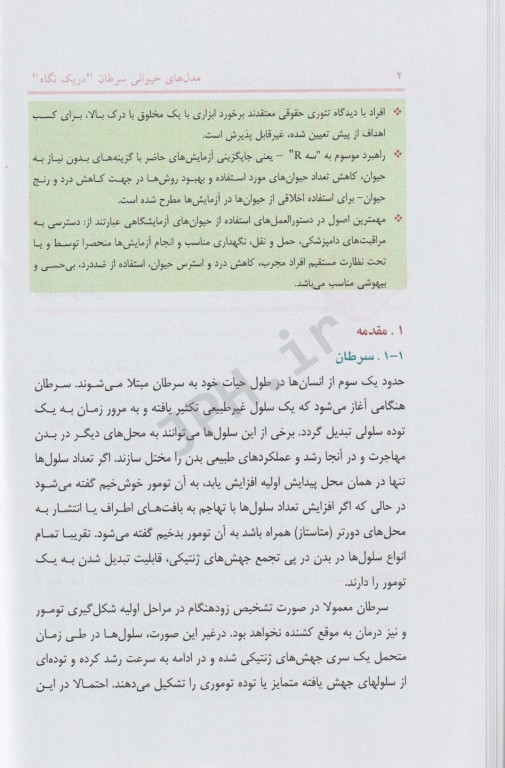 ۲ مدل‌های حیوانی سرطان "در یک نگاه"
❖ افراد با دیدگاه تئوری حقوقی معتقدند برخورد ابزاری با یک مخلوق با درک بالا، برای کسب
اهداف از پیش تعیین شده، غیرقابل پذیرش است.
❖ راهبرد موسوم به "سه R" – یعنی جایگزینی آزمایش‌های حاضر با گزینه‌های بدون نیاز به
حیوان، کاهش تعداد حیوان‌های مورد استفاده و بهبود روش‌ها در جهت کاهش درد و رنج
حیوان- برای استفاده اخلاقی از حیوان‌ها در آزمایش‌ها مطرح شده است.
❖ مهمترین اصول در دستورالعمل‌های استفاده از حیوان‌های آزمایشگاهی عبارتند از: دسترسی به
مراقبت‌های دامپزشکی، حمل و نقل، نگهداری مناسب و انجام آزمایش‌ها منحصرا توسط و یا
تحت نظارت مستقیم افراد مجرب، کاهش درد و استرس حیوان، استفاده از ضددرد، بی‌حسی و
بیهوشی مناسب می‌باشد.
۱ . مقدمه
۱-۱ . سرطان
حدود یک سوم از انسان‌ها در طول حیات خود به سرطان مبتلا می‌شوند. سرطان
هنگامی آغاز می‌شود که یک سلول غیرطبیعی تکثیر یافته و به مرور زمان به یک
توده سلولی تبدیل گردد. برخی از این سلول‌ها می‌توانند به محل‌های دیگر در بدن
مهاجرت و در آنجا رشد و عملکردهای طبیعی بدن را مختل سازند. اگر تعداد سلول‌ها
تنها در همان محل پیدایش اولیه افزایش یابد، به آن تومور خوش‌خیم گفته می‌شود
در حالی که اگر افزایش تعداد سلول‌ها با تهاجم به بافت‌های اطراف یا انتشار به
محل‌های دورتر (متاستاز) همراه باشد به آن تومور بدخیم گفته می‌شود. تقریبا تمام
انواع سلول‌ها در بدن در پی تجمع جهش‌های ژنتیکی، قابلیت تبدیل شدن به یک
تومور را دارند.
سرطان معمولا در صورت تشخیص زودهنگام در مراحل اولیه شکل‌گیری تومور
و نیز درمان به موقع کشنده نخواهد بود. درغیر این صورت، سلول‌ها در طی زمان
متحمل یک سری جهش‌های ژنتیکی شده و در ادامه به سرعت رشد کرده و توده‌ای
از سلولهای جهش یافته متمایز یا توده توموری را تشکیل می‌دهند. احتمالا در این
JPH.ir